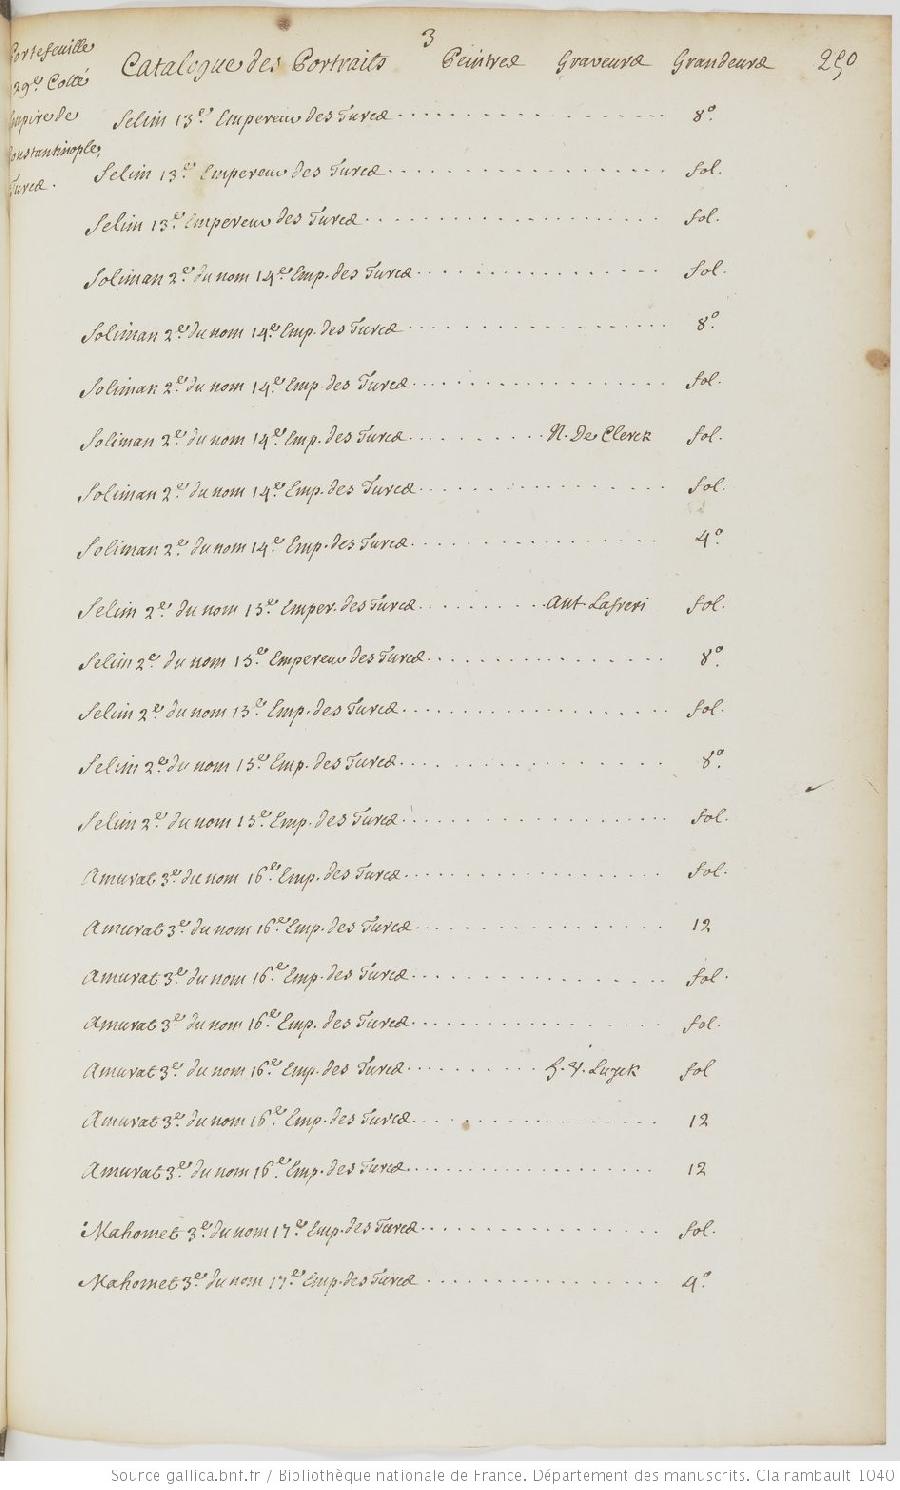 3
Portefeuille
29.e Cotté
Empire de
Constantinople,
Turcs.
Catalogue des Portraits Peintres Graveurs Grandeurs 250
Selim 13.e Empereur des Turcs 8.o
Selim 13.e Empereur des Turcs fol.
Selim 13.e Empereur des Turcs fol.
Soliman 2.e du nom 14.e Emp. des Turcs fol.
Soliman 2.e du nom 14.e Emp. des Turcs 8.o
Soliman 2.e du nom 14.e Emp. des Turcs fol.
Soliman 2.e du nom 14.e Emp. des Turcs N. De Clerck fol.
Soliman 2.e du nom 14.e Emp. des Turcs fol.
Soliman 2.e du nom 14.e Emp. des Turcs 4.o
Selim 2.e du nom 15.e Emper. des Turcs Ant. Lafreri fol.
Selim 2.e du nom 15.e Empereur des Turcs 8.o
Selim 2.e du nom 15.e Emp. des Turcs fol.
Selim 2.e du nom 15.e Emp. des Turcs 8.o
Selim 2.e du nom 15.e Emp. des Turcs fol.
Amurat 3.e du nom 16.e Emp. des Turcs fol.
Amurat 3.e du nom 16.e Emp. des Turcs 12
Amurat 3.e du nom 16.e Emp. des Turcs fol.
Amurat 3.e du nom 16.e Emp. des Turcs fol.
Amurat 3.e du nom 16.e Emp. des Turcs fol
Amurat 3.e du nom 16.e Emp. des Turcs 12
Amurat 3.e du nom 16.e Emp. des Turcs 12
Mahomet 3.e du nom 17.e Emp. des Turcs fol.
Mahomet 3.e du nom 17.e Emp. des Turcs 4.o
Source gallica.bnf.fr / Bibliothèque nationale de France. Département des manuscrits. Clairambault 1040